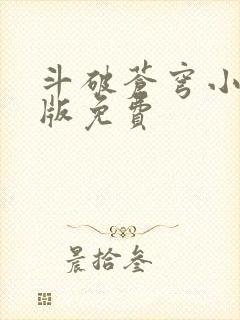 斗破苍穹小
版免費
晨拾叁